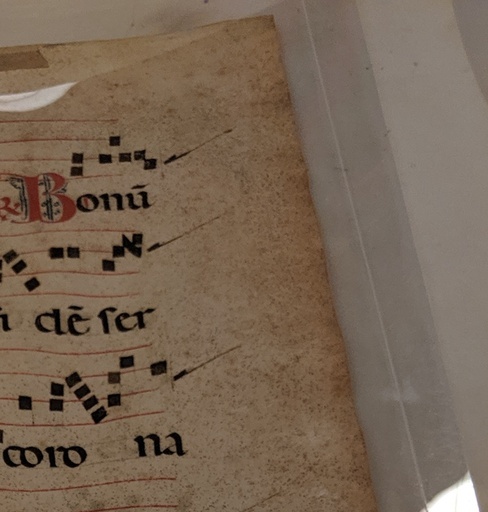 Bonū
dē ſer
coro na